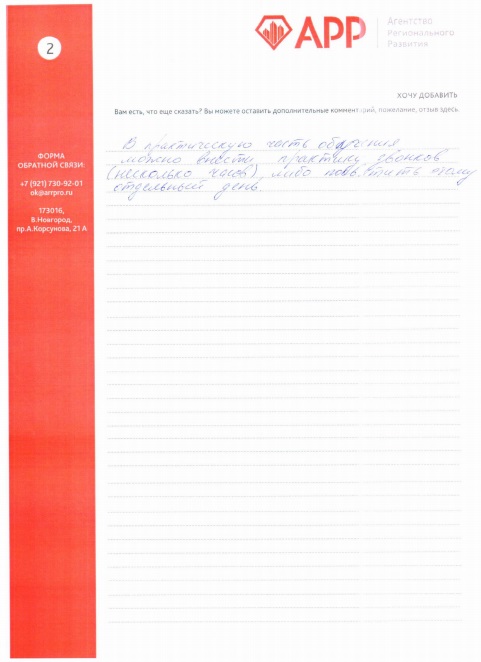 2
АРР
Агентство
Регионального
Развития
ХОЧУ ДОБАВИТЬ
Вам есть, что еще сказать? Вы можете оставить дополнительные комментарий, пожелание, отзыв здесь.
В практическую часть обучения
можно внести практику звонков
(несколько часов), либо посвятить этому
отдельный день
ФОРМА
ОБРАТНОЙ СВЯЗИ:
+7 (921) 730-92-01
ok@arrpro.ru
173016,
В.Новгород,
пр.А.Корсунова, 21 А